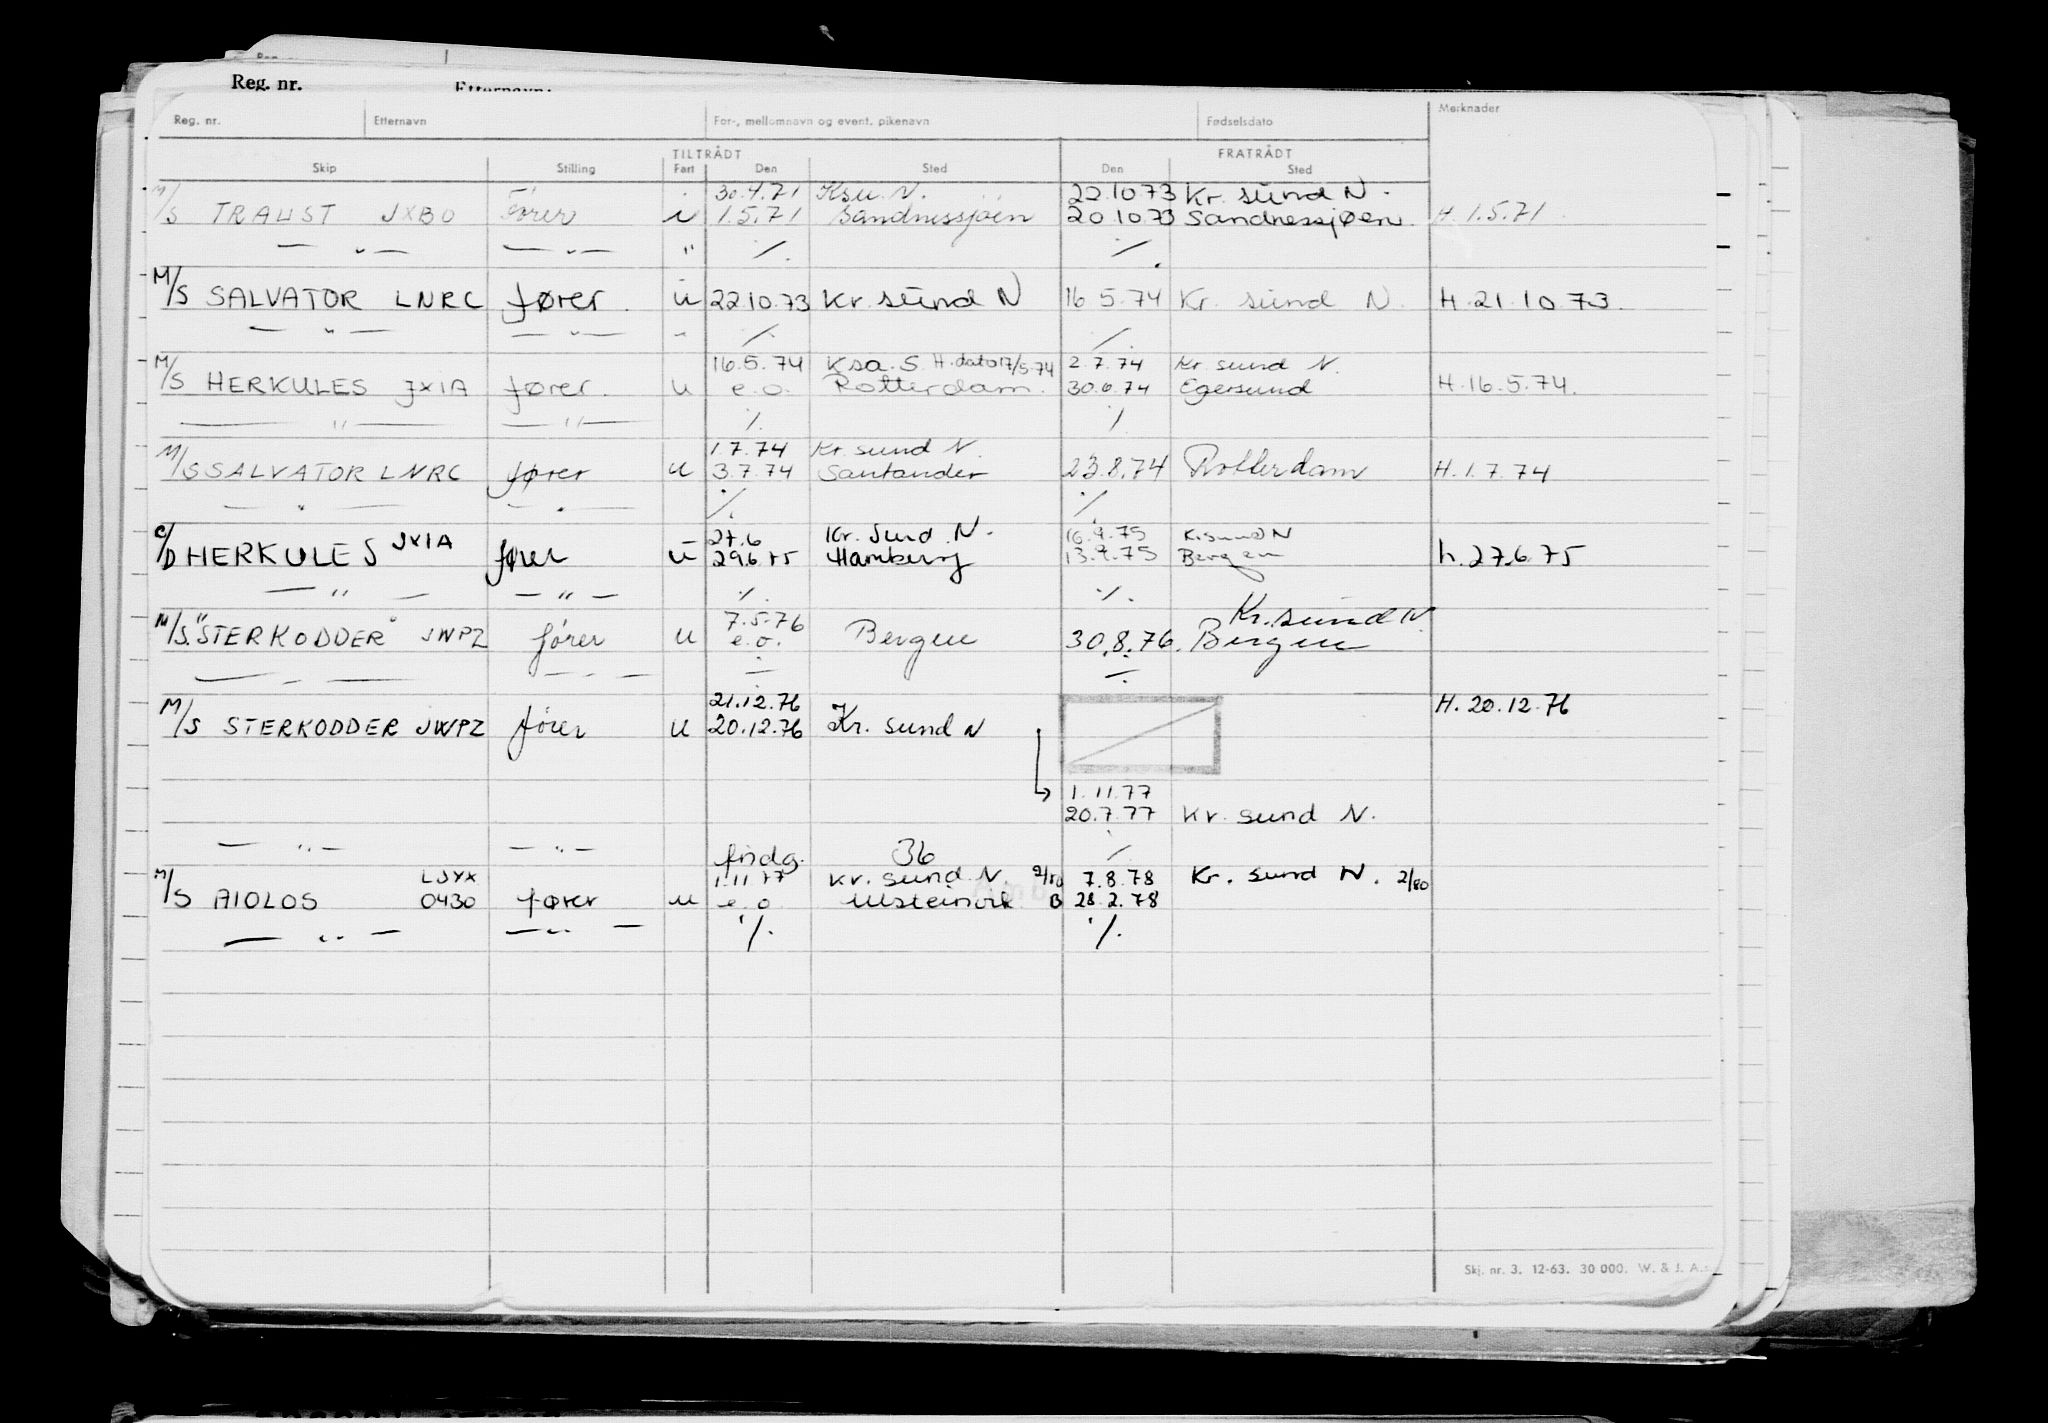 Reg. nr.
Reg. nr. Etternavn For-, mellomnavn og event. pikenavn Fødselsdato Merknader
TILTRÅDT FRATRÅDT
Skip Stilling Fart Den Sted Den Sted
30.4.71 Ksu. N. 22.10 73 Kr. sund N.
M/S TRAUST JXBO Fører u 1.5.71 Sandnessjøen 20 10.73 Sandnessjøen. H. 1.5.71
— " — — " — " ·/. ·/.
M/S SALVATOR LNRC fører. u 22.10.73 Kr. sund N 16 5.74 Kr. sund N. H. 21.10.73.
— " — — " — " ·/. ·/.
16.5.74 Ksa. S H. dato 17/5.74 2.7.74 Kr sund N.
M/S HERKULES JXIA fører. u e.o. Rotterdam. 30.6.74 Egersund H.16.5.74.
— " — — " — ·/. ·/.
1.7.74 Kr. sund N.
M/S SALVATOR LNRC fører u 3.7.74 Santander 23.8.74 Rotterdam H. 1.7.74
— " — — " — ·/. ·/.
27.6 Kr. Sund N. 16.9.75 K.sund N
D HERKULES JXIA fører u 29.6.75 Hamburg 13.9.75 Bergen h. 27.6.75
— " — — " — ·/. ·/.
7.5.76 Kr. sund N
M/S. "STERKODDER" JWPZ fører u e.o. Bergen 30.8.76. Bergen
— " — — " — ÷ ÷
21.12.76 H. 20.12.76
M/S STERKODDER JWPZ fører u 20.12.76 Kr. sund N
1.11.77
20.7.77 Kr. sund N.
— " — — " — fridg. 36 ·/.
LJYX 1.11.77 Kr. sund. N 7.8.78 Kr. sund N. 2/80
M/S AIOLOS 0430 fører u e.o. Ulsteinvik B 28.2.78
— " — — " — ·/. ·/.
Skj. nr. 3. 12-63. 30 000. W. & J. A.s